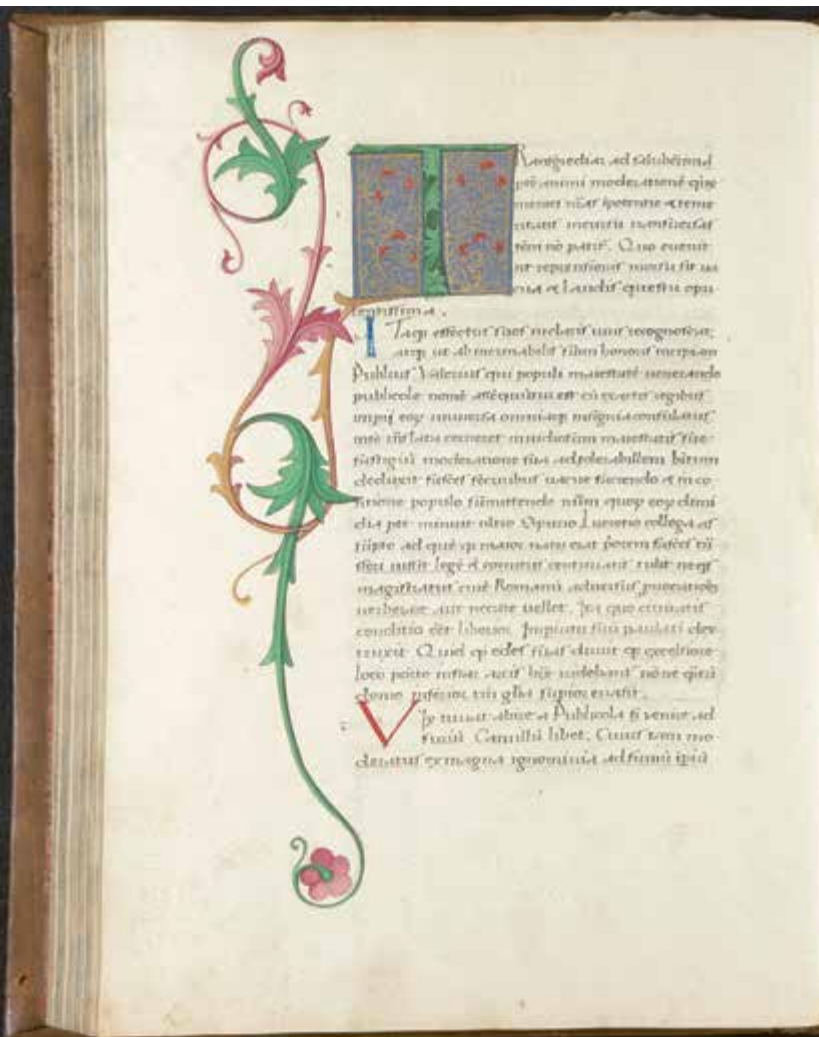 TRansgrediar ad saluberrimã
ptẽ animi moderationẽ que
mentes nr̃as ĩpotentie & teme
ritatis incursu transuersas
non patit̃. Quo euenit
ut reprensionis morsu sit ua
cua & laudis questu opu
lentissima.
ITaqꝫ effectus suos in claris uiris recognoscat,
atqꝫ ut ab incunabulis sũmi honoris incipiam
Publius Valerius qui populi maiestatẽ uenerando
publicole nomẽ assequutus est cũ exactis regibus
imperij eoꝝ uniuersa omniaqꝫ insignia consulatus
in se cerneret inuidiosum maiestatis sue
fastigiũ moderatione sua ad tolerabillem bitum
deduxit fasces securibus uacue faciendo & in co
tione populo sũmittendo nũm quoqꝫ eoꝝ dimi
dia pte minuit ultro Spurio Lucretio collega as
sũpto ad quẽ qꝫ maior natu erat fasces
iussit legẽ & comitiis centuriatis tulit neqs
magistratus ciuẽ Romanũ aduersus prouocatiõẽ
uerberare aut necare uellet. Ita quo ciuitatis
conditio ẽet liberior. Imperium suũ paulati des
truxit. Quid qꝫ edes suas diruit qꝫ excelsiore
loco posite instar arcis hr̃e uidebant nõne q̃tũ
domo inferior tm̃ gl̃ia supior euasit.
VIx iuuat abire a Publicola sꝫ uenire ad
furiũ Camillũ libet. Cuius tam mo
deratus ex magna ignominia ad sũmũ ipiũ